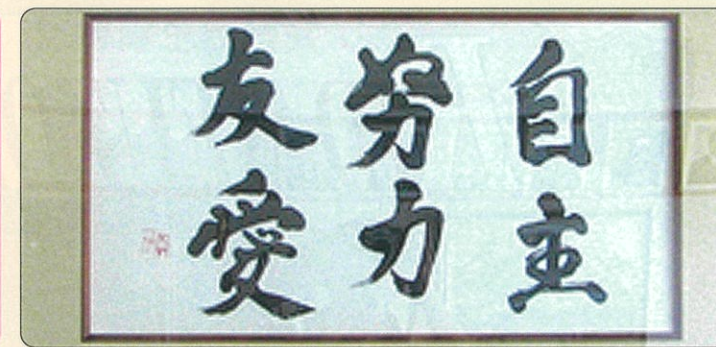 自主
努力
友愛